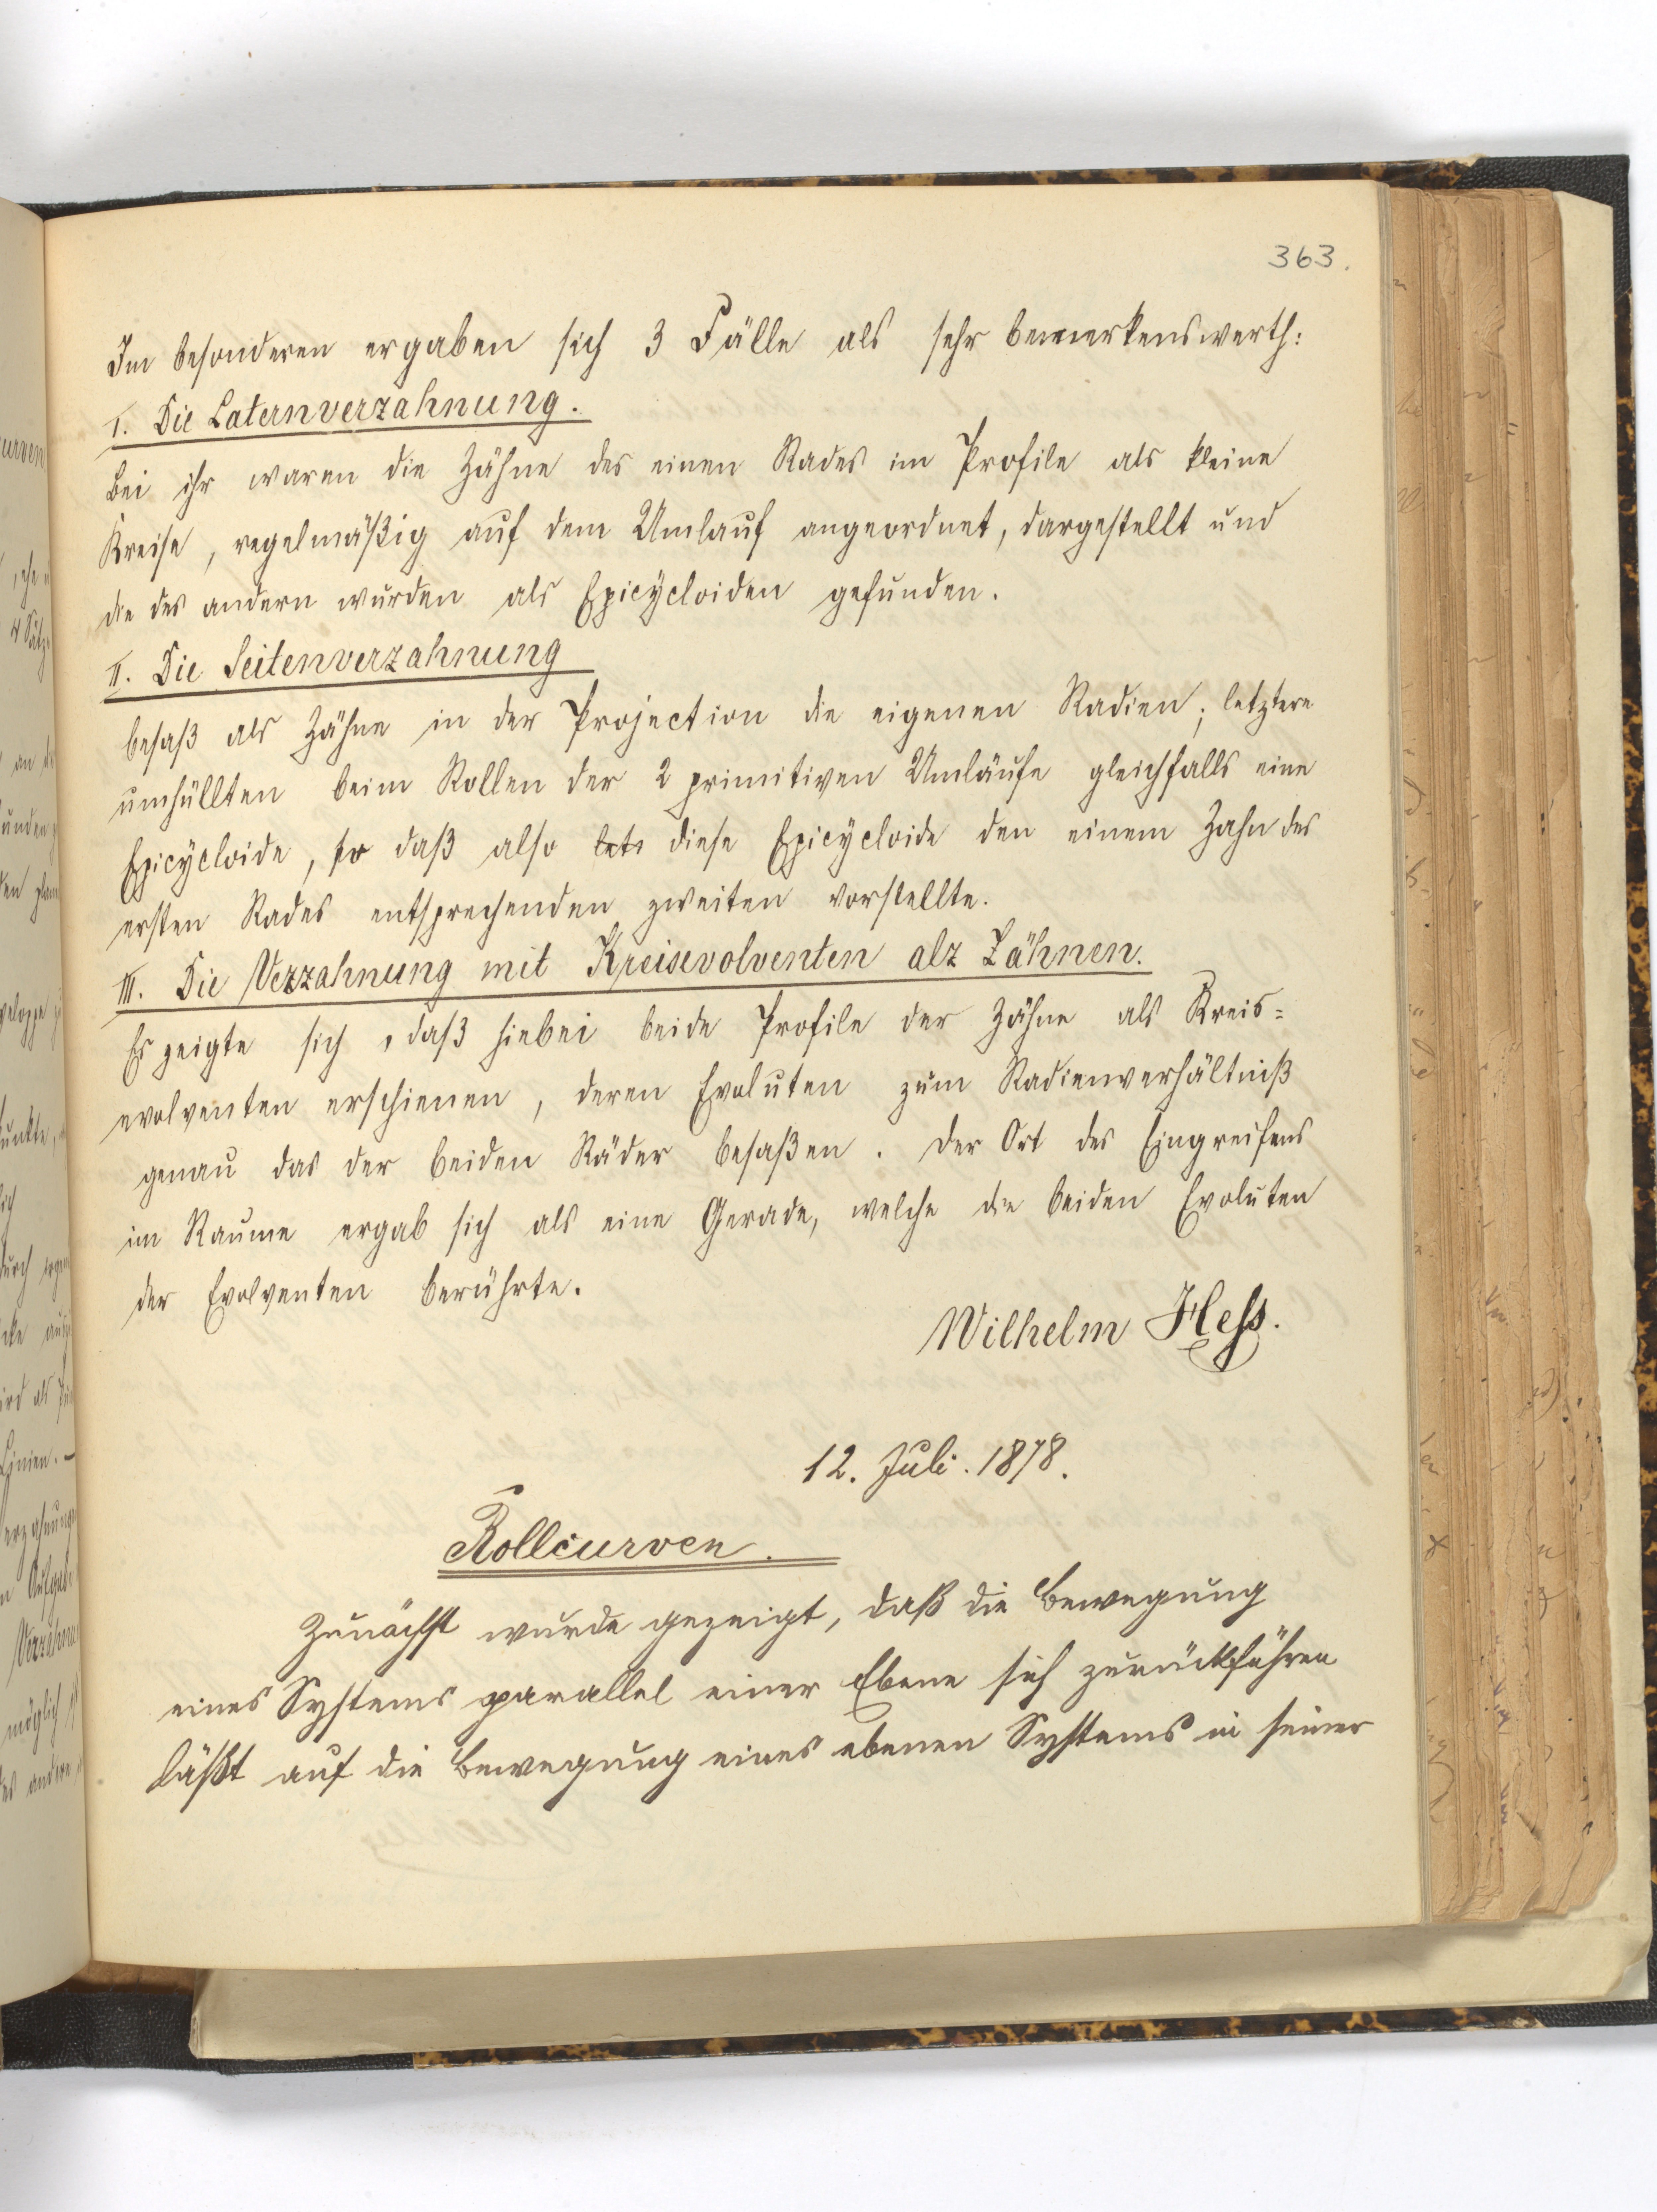 363.
Im besonderen ergaben sich 3 Fälle als sehr bemerkenswerth:
I. Die Laternverzahnung.
Bei ihr waren die Zähne des einen Rades im Profile als kleine
Kreise, regelmäßig auf dem Umlauf angeordnet, dargestellt und
die des andern wurden als Epicycloiden gefunden.
II. Die Seitenverzahnung
besaß als Zähne in der Projection die eigenen Radien; letztere
umhüllten beim Rollen der 2 primitiven Umläufe gleichfalls eine
Epicycloide, so daß also diese Epicycloide den einem Zahn des
ersten Rades entsprechenden zweiten vorstellte.
III. Die Verzahnung mit Kreisevolventen als Zähnen.
Es zeigte sich, daß hiebei beide Profile der Zähne als Kreis=
evolventen erschienen, deren Evoluten zum Radienverhältniß
genau das der beiden Räder besaßen. Der Ort des Eingreifens
im Raume ergab sich als eine Gerade, welche die beiden Evoluten
der Evolventen berührte.
Wilhelm Hess.
12. Juli. 1878.
Rollcurven.
Zunächst wurde gezeigt, daß die Bewegung
eines Systems parallel einer Ebene sich zurückführen
läßt auf die Bewegung eines ebenen Systems in seiner